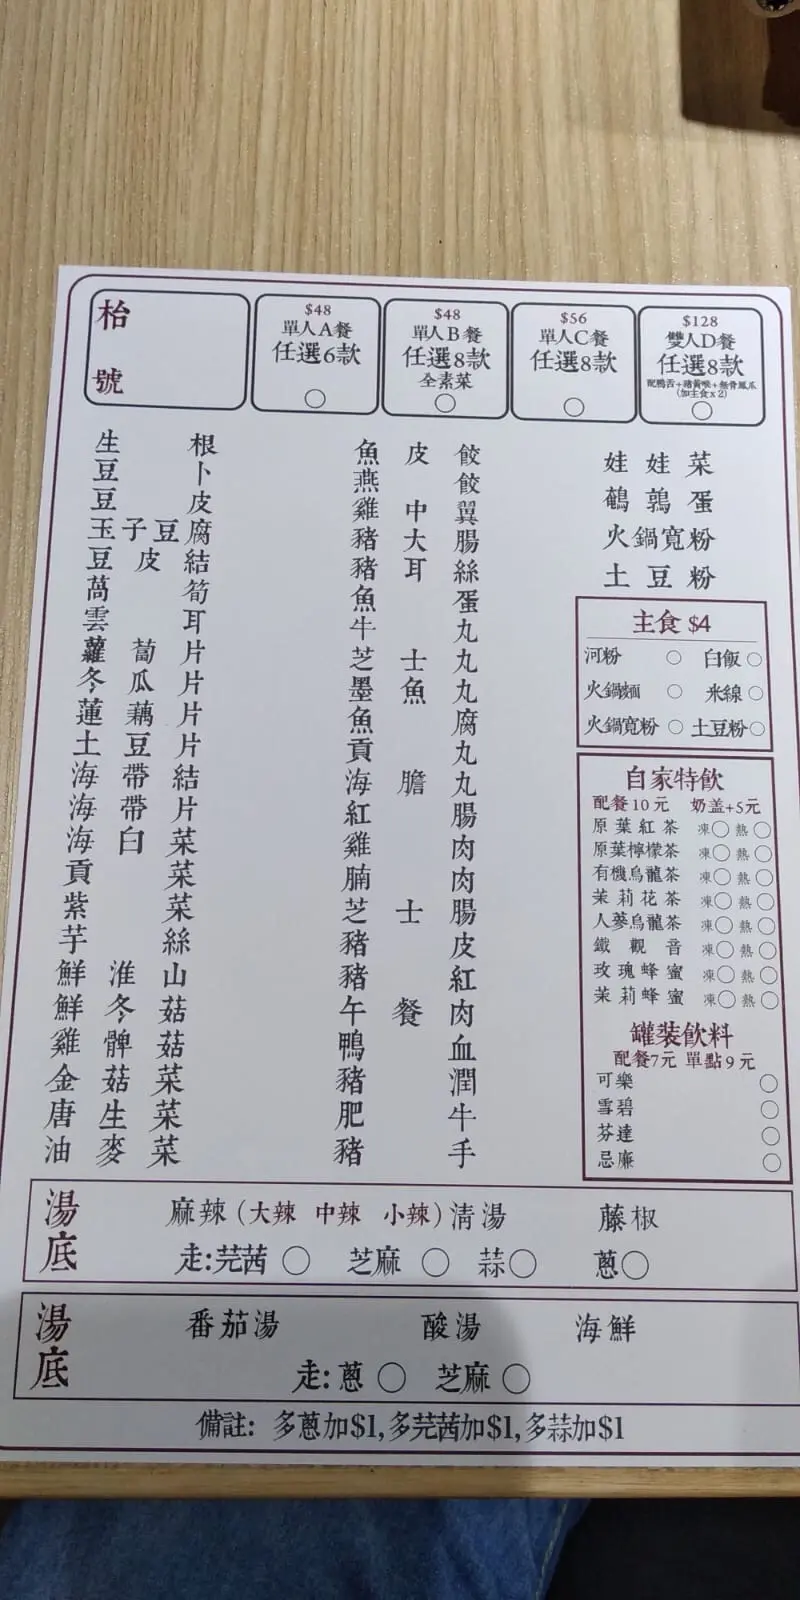 枱號
$48
單人A餐
任選6款
$48
單人B餐
任選8款
全素菜
$56
單人C餐
任選8款
$128
雙人D餐
任選8款
配鴨舌+豬黃喉+無骨鳳爪
(加主食x2)
生根
豆卜
豆皮
玉子豆腐
豆皮結
萵筍
雲耳
蘿蔔片
冬瓜片
蓮藕片
土豆片
海帶結
海帶片
海白菜
貢菜
紫菜
芋絲
鮮淮山
鮮冬菇
雞髀菇
金菇菜
唐生菜
油麥菜
魚皮餃
燕餃
雞中翼
豬大腸
豬耳絲
魚蛋
牛丸
芝士丸
墨魚丸
魚腐
貢丸
海膽丸
紅腸
雞肉
腩肉
芝士腸
豬皮
豬紅
午餐肉
鴨血
豬潤
肥牛
豬手
娃娃菜
鵪鶉蛋
火鍋寬粉
土豆粉
主食 $4
河粉 白飯
火鍋麵 米線
火鍋寬粉 土豆粉
自家特飲
配餐10元 奶盖+5元
原葉紅茶 凍 熱
原葉檸檬茶 凍 熱
有機烏龍茶 凍 熱
茉莉花茶 凍 熱
人蔘烏龍茶 凍 熱
鐵觀音 凍 熱
玫瑰蜂蜜 凍 熱
茉莉蜂蜜 凍 熱
罐裝飲料
配餐7元 單點9元
可樂
雪碧
芬達
忌廉
湯底
麻辣(大辣 中辣 小辣) 清湯 藤椒
走:芫茜 芝麻 蒜 蔥
湯底
番茄湯 酸湯 海鮮
走:蔥 芝麻
備註: 多蔥加$1,多芫茜加$1,多蒜加$1